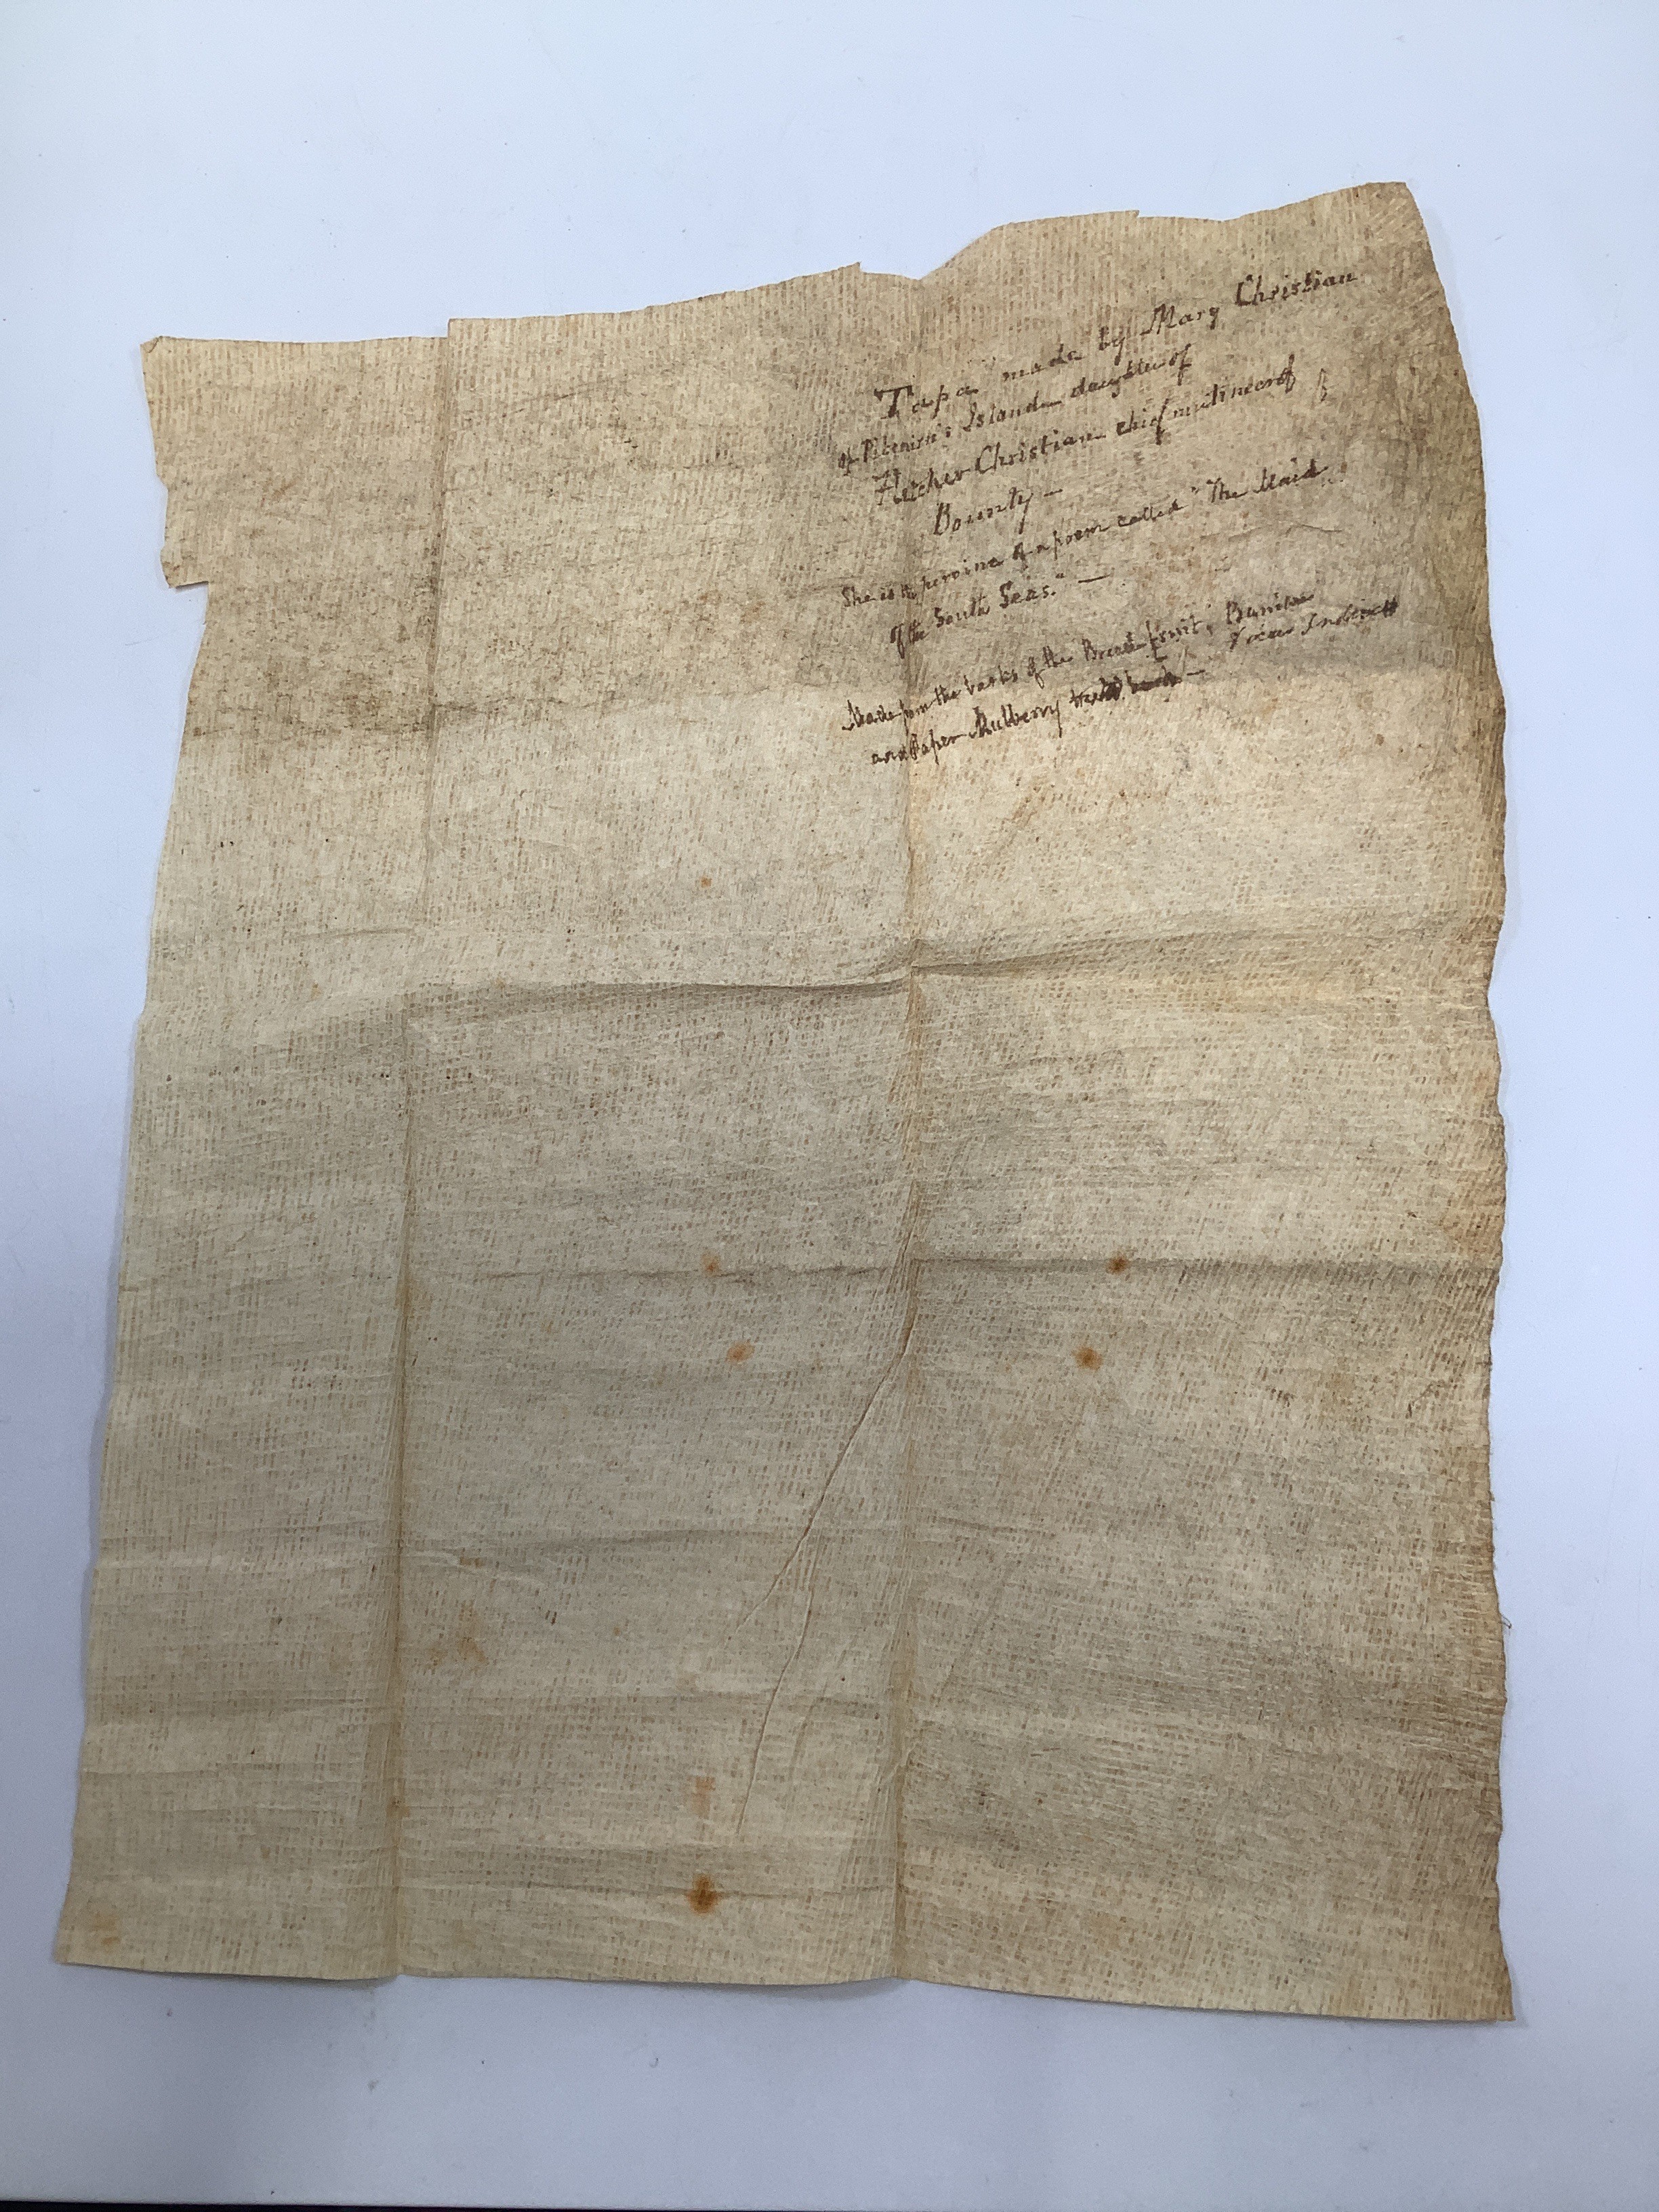 Tapa made by Mary Christian
of Pitcairn's Island daughter of
Fletcher Christian chief mutineer of
Bounty —
She is the heroine of a poem called "The Maid
of the South Seas." —
Made from the barks of the Bread fruit, Banian
and Paper Mulberry —
Ficus